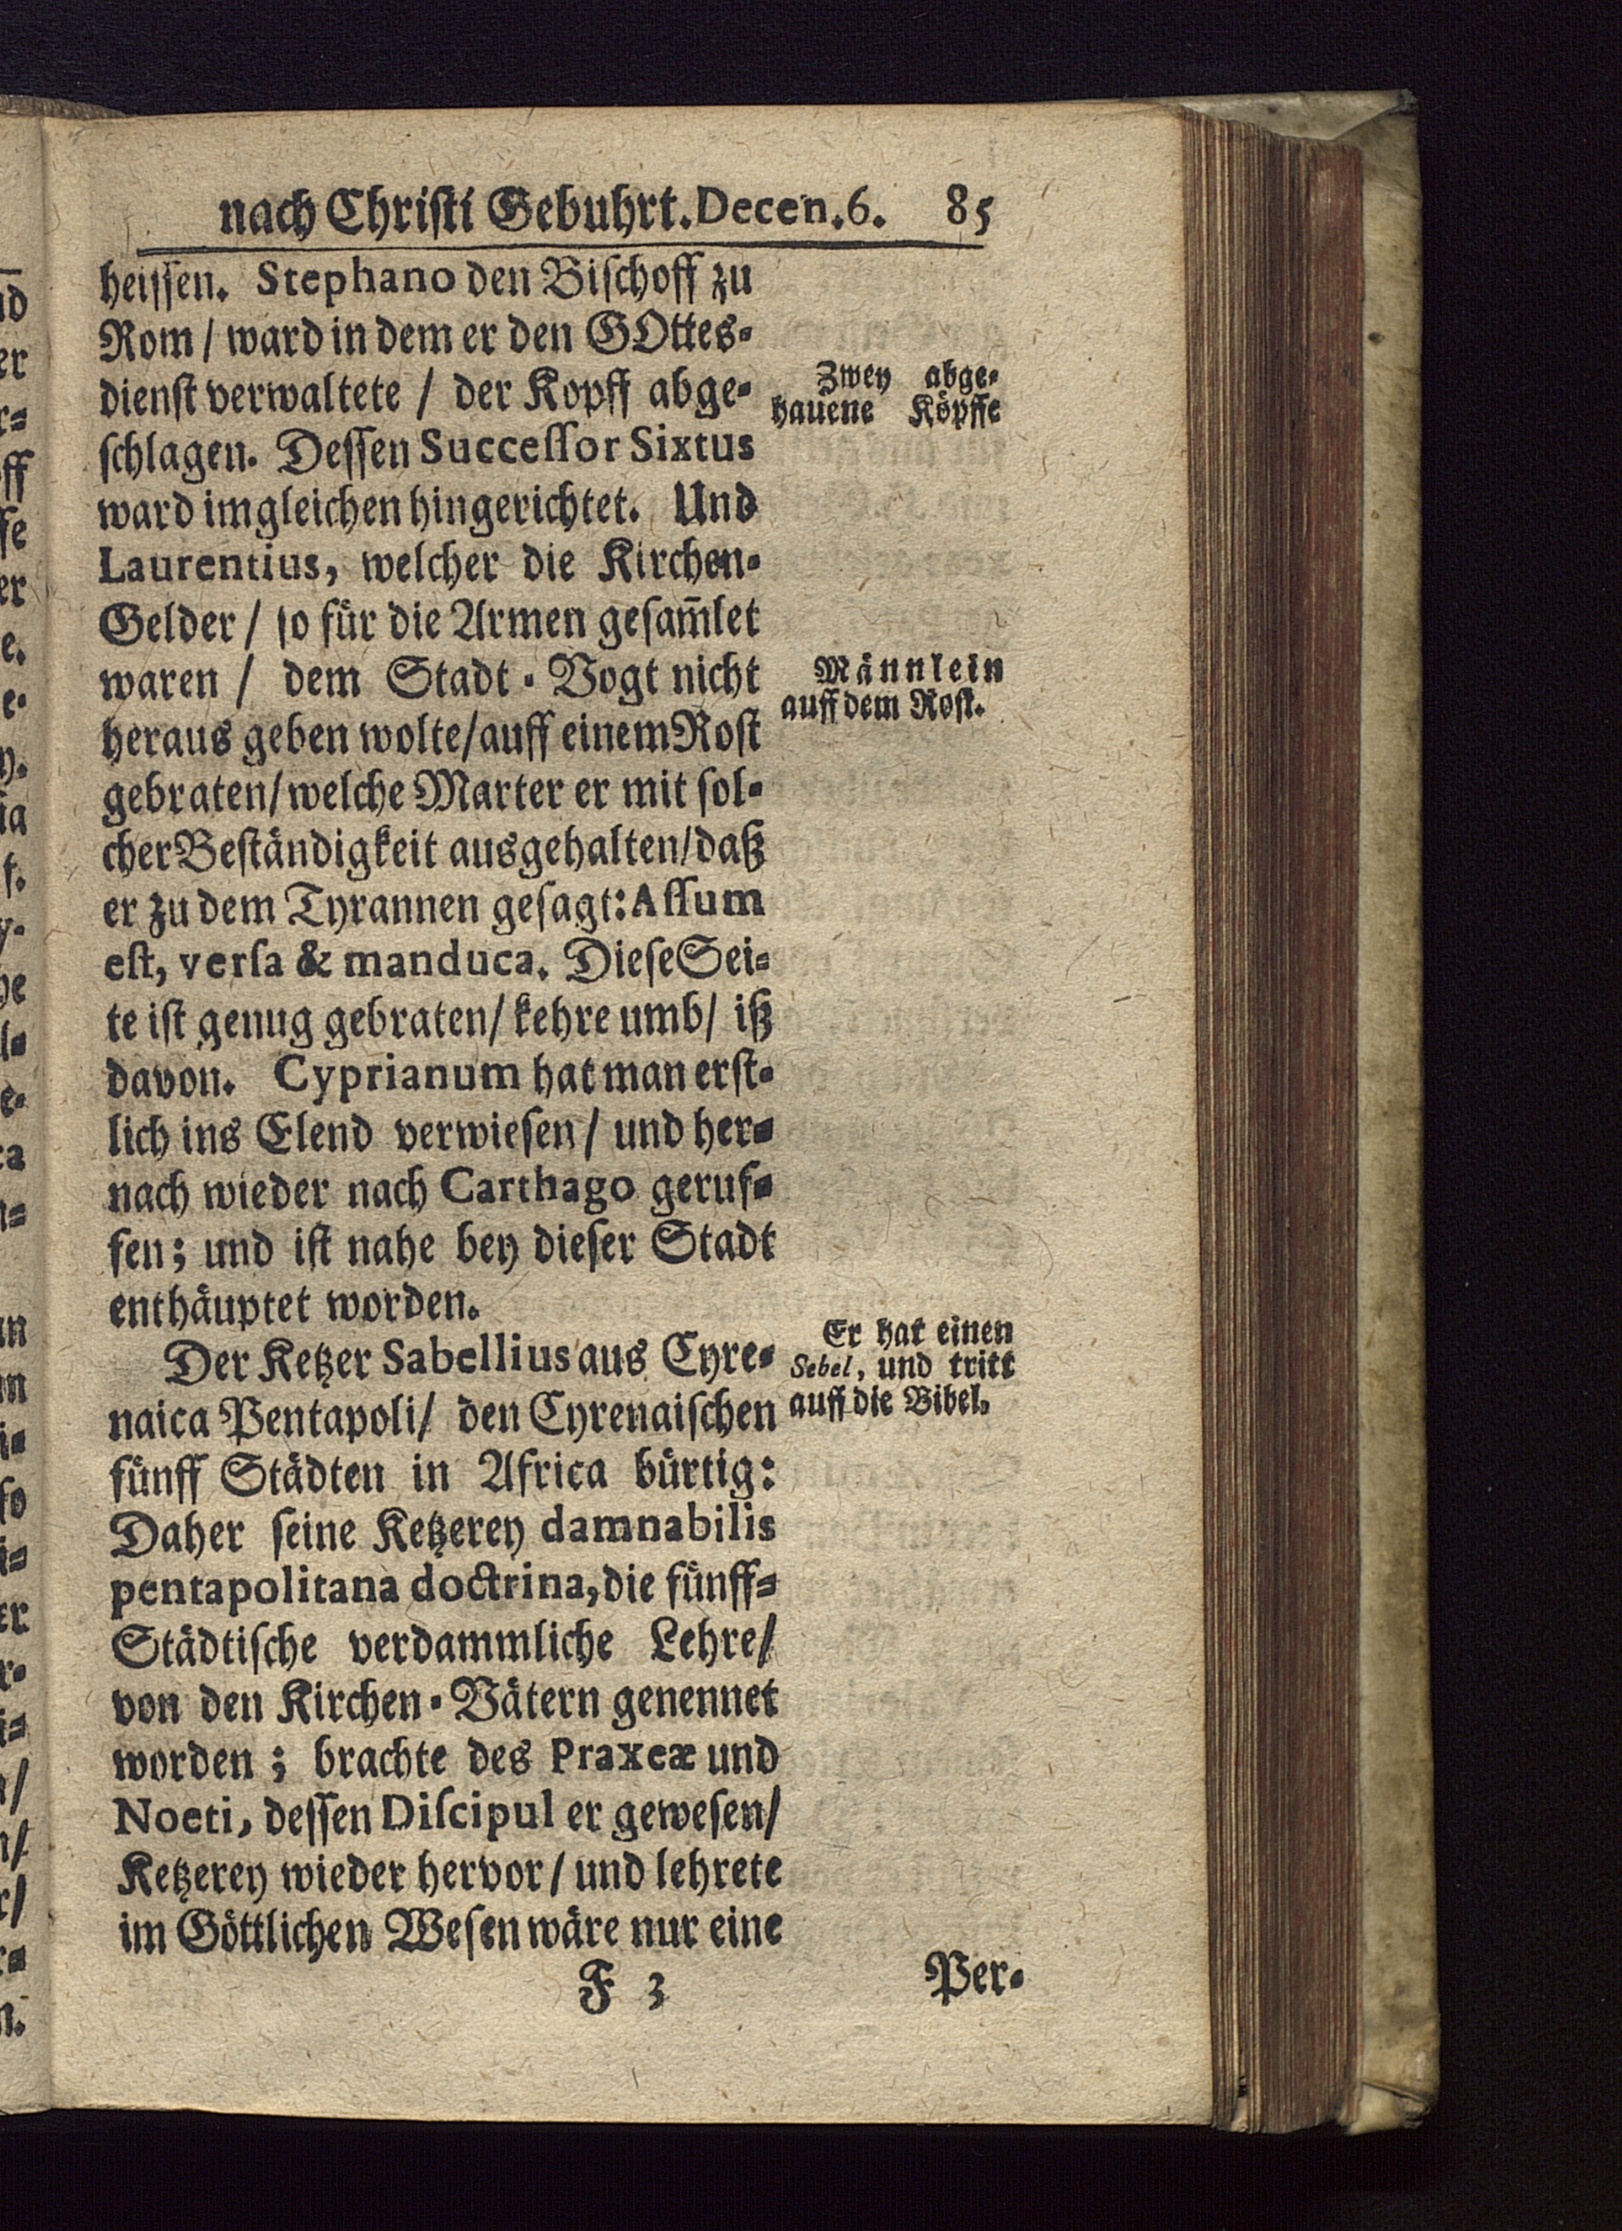 nach Chriſti Gebuhrt. Decen. 6. 85
heiſſen. Stephano den Biſchoff zu
Rom / ward in dem er den GOttes-
dienſt verwaltete / der Kopff abge-
ſchlagen. Deſſen Succeſſor Sixtus
ward imgleichen hingerichtet. Und
Laurentius, welcher die Kirchen-
Gelder / ſo fuͤr die Armen geſam̃let
waren / dem Stadt-Vogt nicht
heraus geben wolte / auff einem Roſt
gebraten / welche Marter er mit ſol-
cher Beſtaͤndigkeit ausgehalten / daß
er zu dem Tyrannen geſagt: Aſſum
eſt, verſa & manduca. Dieſe Sei-
te iſt genug gebraten / kehre umb / iß
davon. Cyprianum hat man erſt-
lich ins Elend verwieſen / und her-
nach wieder nach Carthago geruf-
fen; und iſt nahe bey dieſer Stadt
enthaͤuptet worden.
Der Ketzer Sabellius aus Cyre-
naica Pentapoli / den Cyrenaiſchen
fuͤnff Staͤdten in Africa buͤrtig:
Daher ſeine Ketzerey damnabilis
pentapolitana doctrina, die fuͤnff-
Staͤdtiſche verdammliche Lehre /
von den Kirchen-Vaͤtern genennet
worden; brachte des Praxeæ und
Noeti, deſſen Diſcipul er geweſen /
Ketzerey wieder hervor / und lehrete
im Goͤttlichen Weſen waͤre nur eine
F 3 Per-
Zwey abge-
hauene Koͤpffe
Maͤnnlein
auff dem Roſt.
Er hat einen
Sebel, und tritt
auff die Bibel.